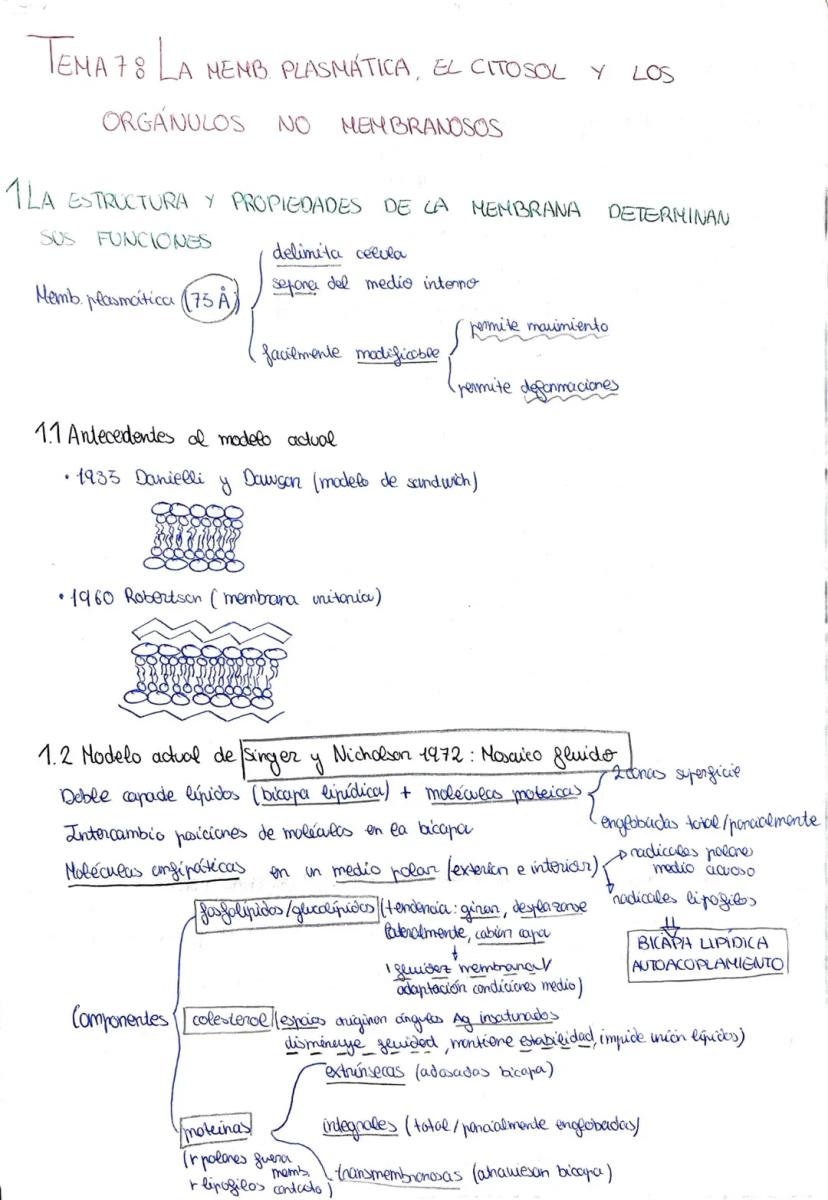 TEMA 7: LA MEMB. PLASMÁTICA, EL CITOSOL Y LOS
ORGÁNULOS NO MEMBRANOSOS
1 LA ESTRUCTURA Y PROPIEDADES DE LA MEMBRANA DETERMINAN
SUS FUNCIONES
Memb. plasmática (75 Å)
delimita célula
separa del medio interno
facilmente modificable
permite movimiento
permite deformaciones
1.1 Antecedentes al modelo actual
• 1935 Danielli y Dawson (modelo de sandwich)
• 1960 Robertson (membrana unitaria)
1.2 Modelo actual de Singer y Nicholson 1972: Mosaico fluido
Doble capa de lípidos (bicapa lipídica) + moléculas proteicas
2 zonas superficie
englobadas total/parcialmente
Intercambio posiciones de moléculas en la bicapa
Moléculas anfipáticas en un medio polar (exterior e interior)
radicales polares
medio acuoso
radicales lipofilos
BICAPA LIPÍDICA
AUTOACOPLAMIENTO
Componentes
fosfolípidos/glucolípidos (tendencia: girar, desplazarse
lateralmente, capa
fluidez membrana
adaptación condiciones medio)
colesterol (espacios originan ángulos Ag insaturados
disminuye fluidez, mantiene estabilidad, impide unión lípidos)
proteinas
(r polares fuera
memb.
r lipofilos contacto)
extrínsecas (adosadas bicapa)
integrales (total/parcialmente englobadas)
transmembranosas (atraviesan bicapa)